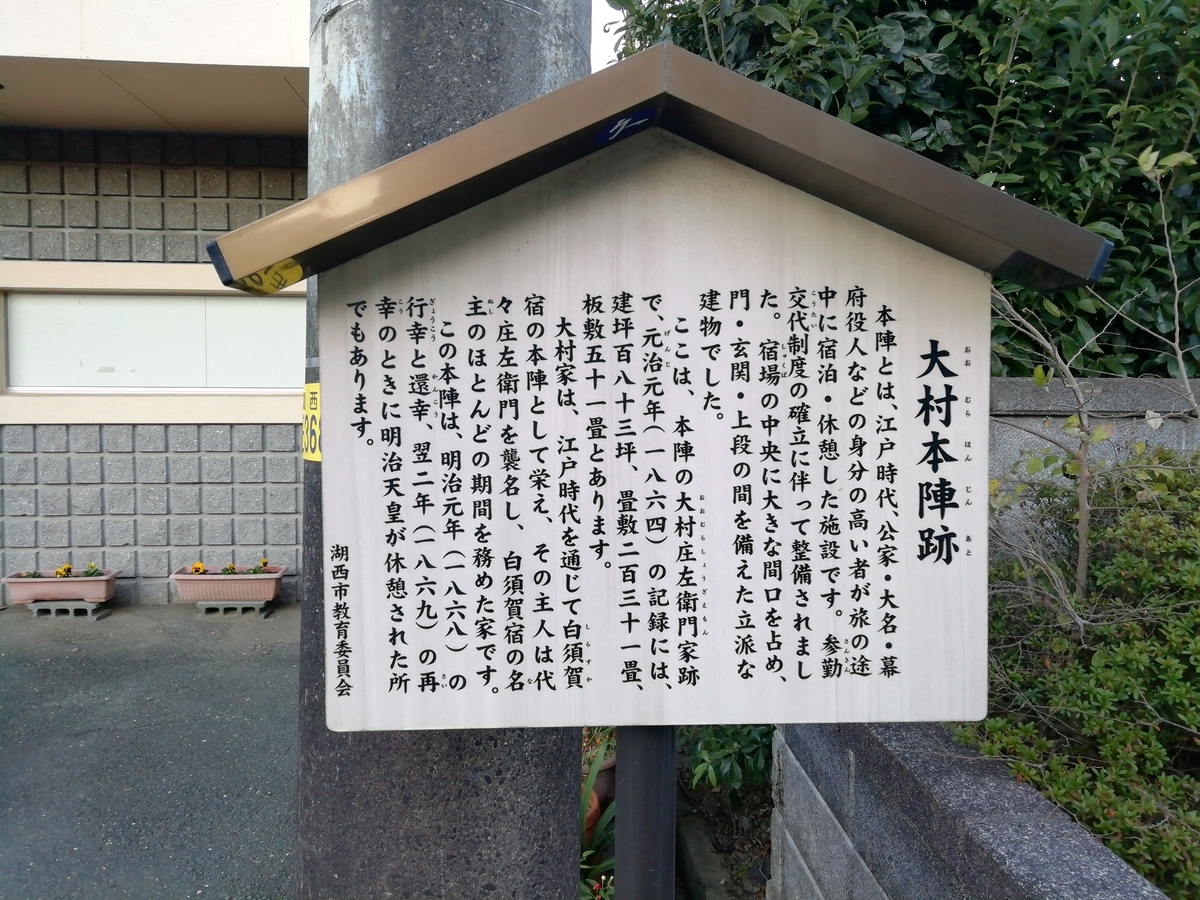 大村本陣跡
おおむらほんじんあと
本陣とは、江戸時代、公家・大名・幕
府役人などの身分の高い者が旅の途
中に宿泊・休憩した施設です。参勤
さんきん
交代制度の確立に伴って整備されまし
こうたい
た。宿場の中央に大きな間口を占め、
しゅくば
門・玄関・上段の間を備えた立派な
建物でした。
ここは、本陣の大村庄左衛門家跡
おおむらしょうざえもん
で、元治元年(一八六四)の記録には、
げんじ
建坪百八十三坪、畳敷二百三十一畳、
板敷五十一畳とあります。
大村家は、江戸時代を通じて白須賀
しらすか
宿の本陣として栄え、その主人は代
々庄左衛門を襲名し、白須賀宿の名
な
主のほとんどの期間を務めた家です。
ぬし
この本陣は、明治元年(一八六八)の
行幸と還幸、翌二年(一八六九)の再
ぎょうこう かんこう さい
幸のときに明治天皇が休憩された所
こう
でもあります。
湖西市教育委員会
西
368